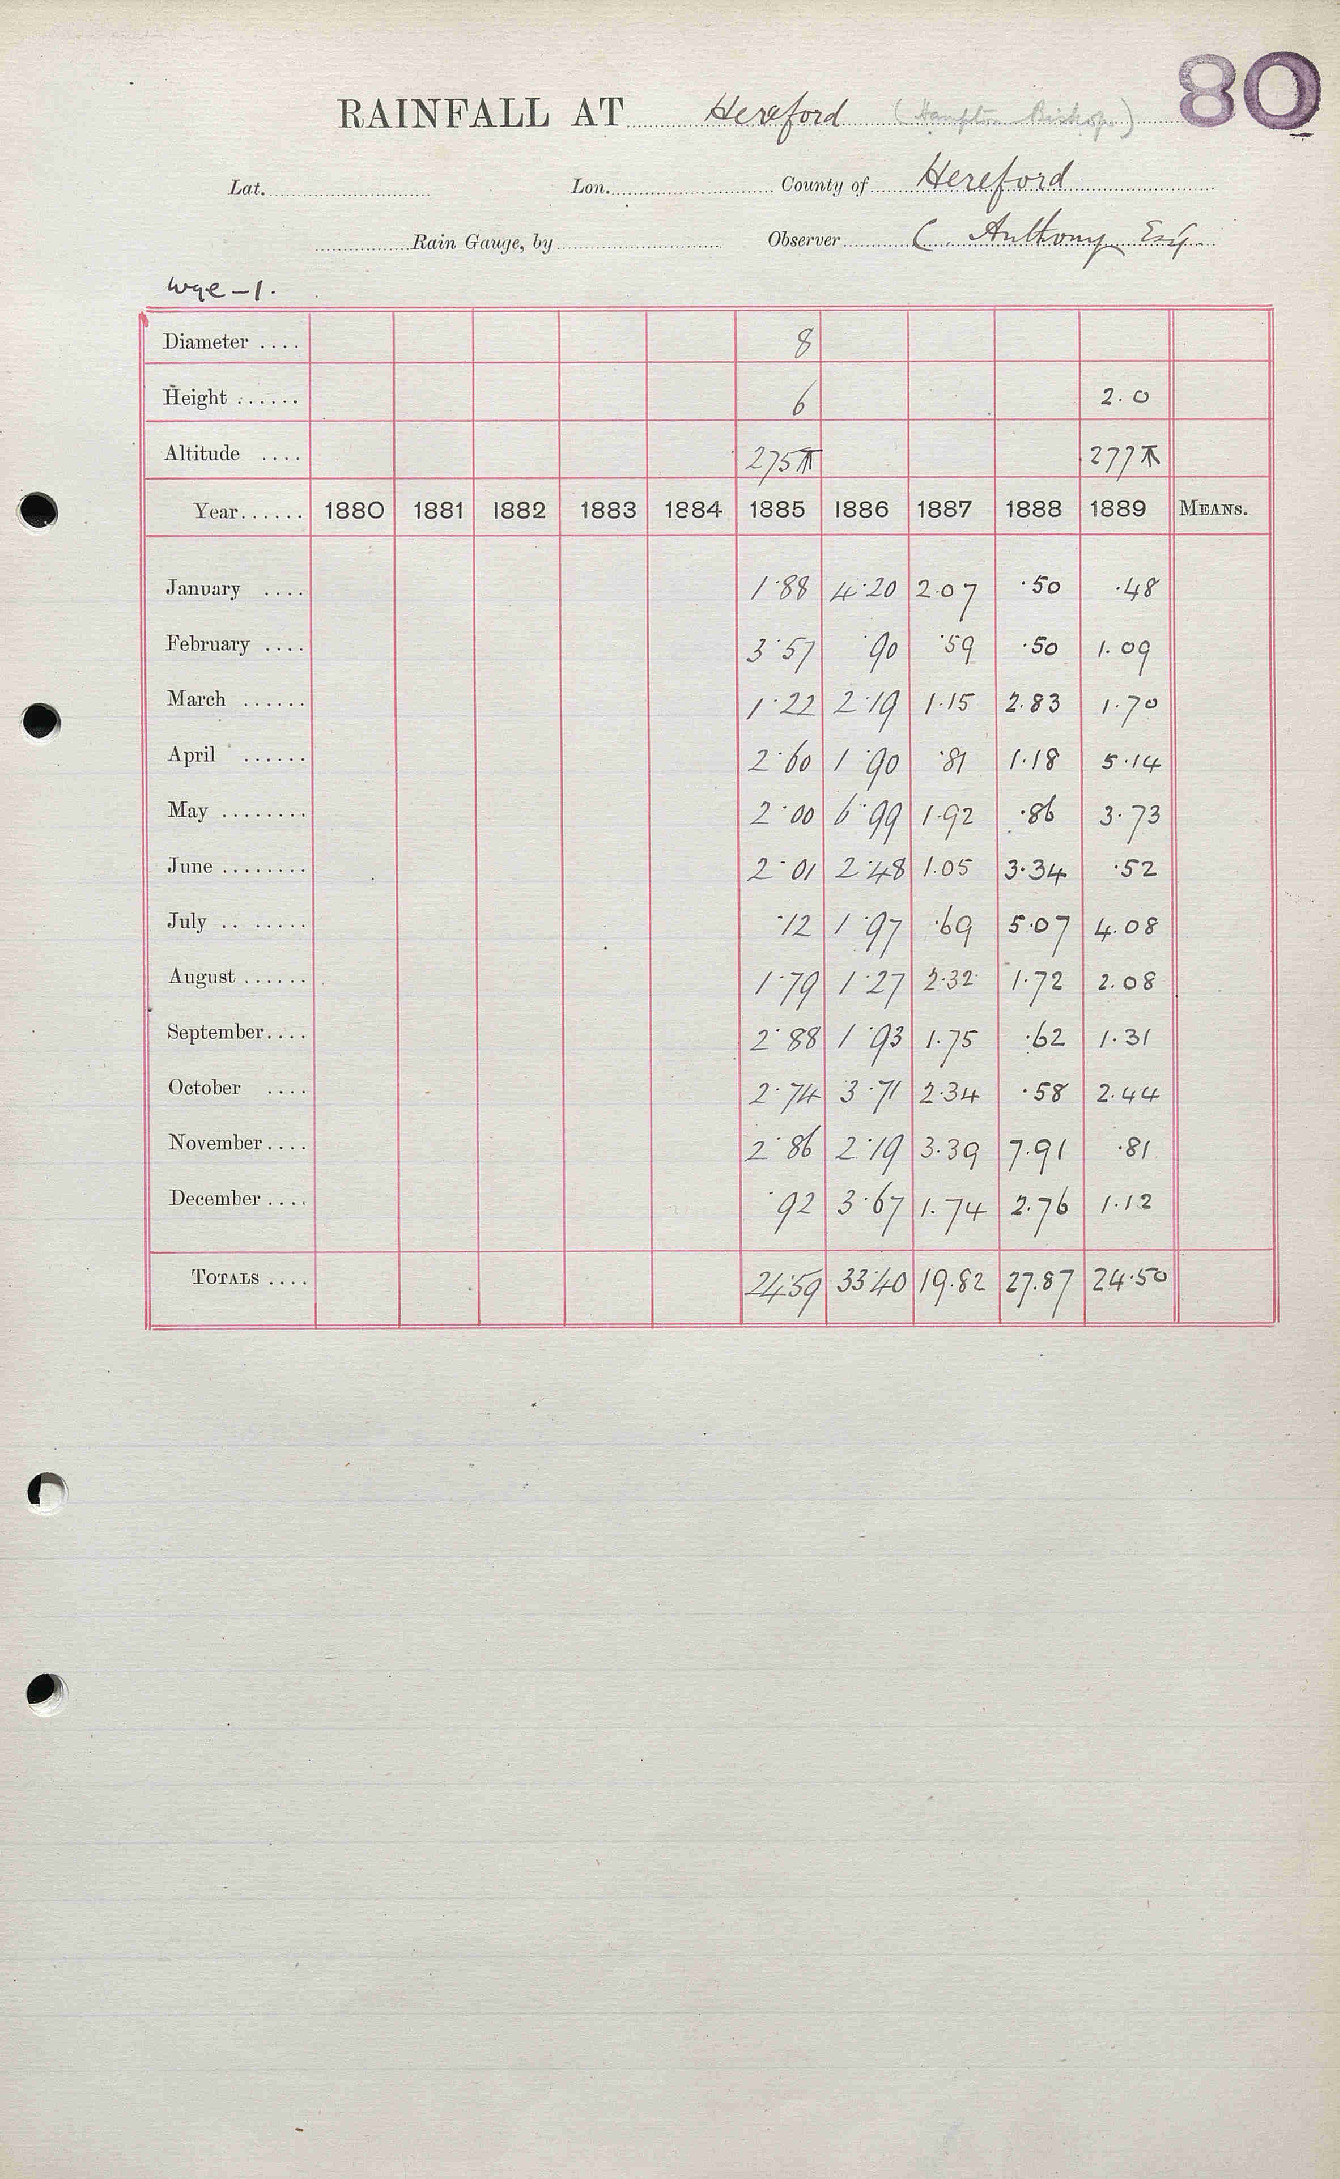 80
RAINFALL AT Hereford (Hampton Bishop)
Lat. Lon. County of Hereford
Rain Gauge, by Observer C. Anthony Esq
Wye – 1.
Diameter .... 8
Height ...... 6 2.0
Altitude .... 275 277
Year...... 1880 1881 1882 1883 1884 1885 1886 1887 1888 1889 MEANS.
January .... 1·88 4·20 2·07 ·50 ·48
February .... 3·57 ·90 ·59 ·50 1.09
March ...... 1·22 2·19 1·15 2.83 1·70
April ...... 2·60 1·90 ·81 1·18 5·14
May ........ 2·00 6·99 1·92 ·86 3·73
June ........ 2·01 2·48 1.05 3·34 ·52
July .. ...... ·12 1·97 ·69 5·07 4.08
August ...... 1·79 1·27 2·32 1·72 2.08
September.... 2·88 1·93 1.75 ·62 1·31
October .... 2·74 3·71 2·34 ·58 2.44
November.... 2·86 2·19 3·39 7·91 ·81
December.... ·92 3·67 1.74 2.76 1·12
TOTALS .... 24·59 33·40 19.82 27.87 24·50